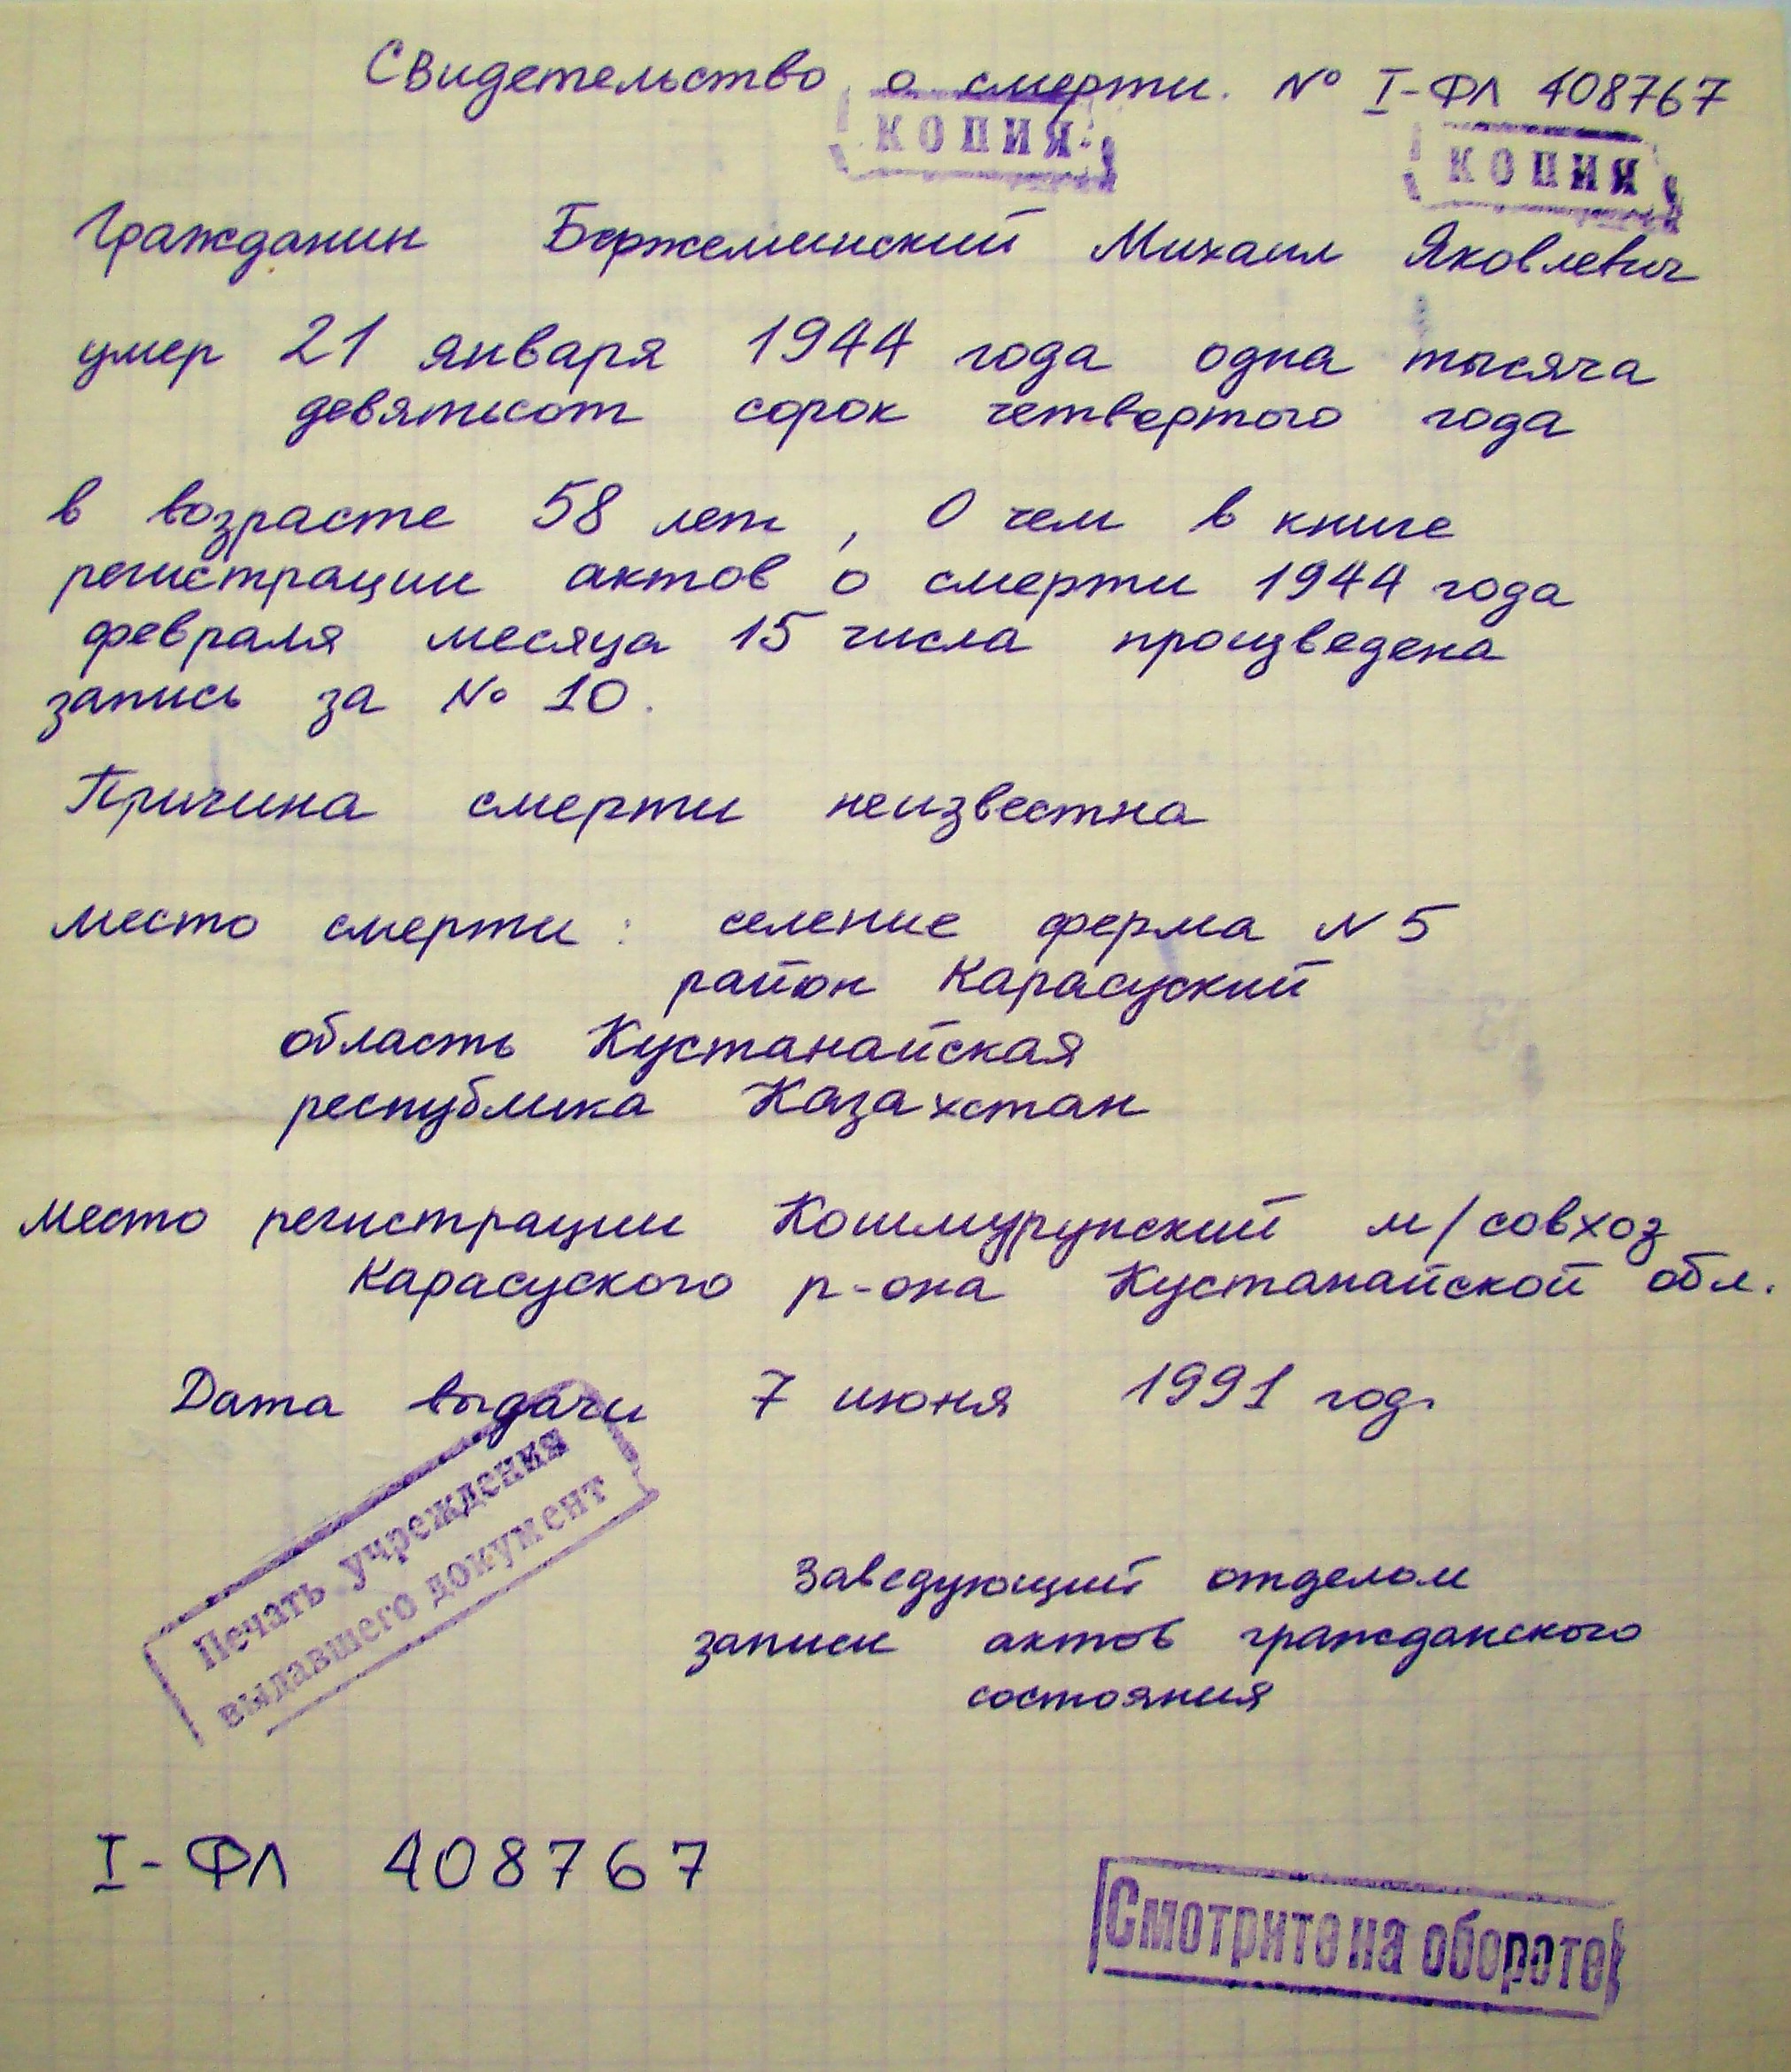 Свидетельство о смерти. № I-ФЛ 408767
КОПИЯ
КОПИЯ
Гражданин Бержеминский Михаил Яковлевич
умер 21 января 1944 года одна тысяча
девятьсот сорок четвертого года
в возрасте 58 лет, О чем в книге
регистрации актов о смерти 1944 года
февраля месяца 15 числа произведена
запись за № 10.
Причина смерти неизвестна
Место смерти: селение ферма N 5
район Карасуский
область Кустанайская
республика Казахстан
Место регистрации Кошмурунский м/совхоз
Карасуского р-она Кустанайской обл.
Дата выдачи 7 июня 1991 год.
Печать учреждения
выдавшего документ
Заведующий отделом
записи актов гражданского
состояния
I-ФЛ 408767
Смотрите на обороте